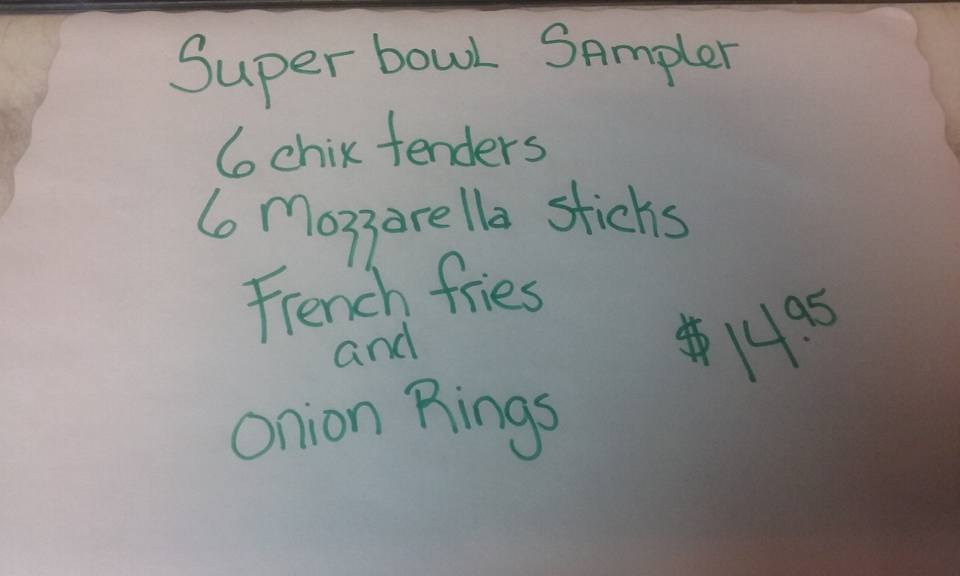 Super bowl Sampler
6 chix tenders
6 Mozzarella sticks
French fries
and
Onion Rings
$14.95